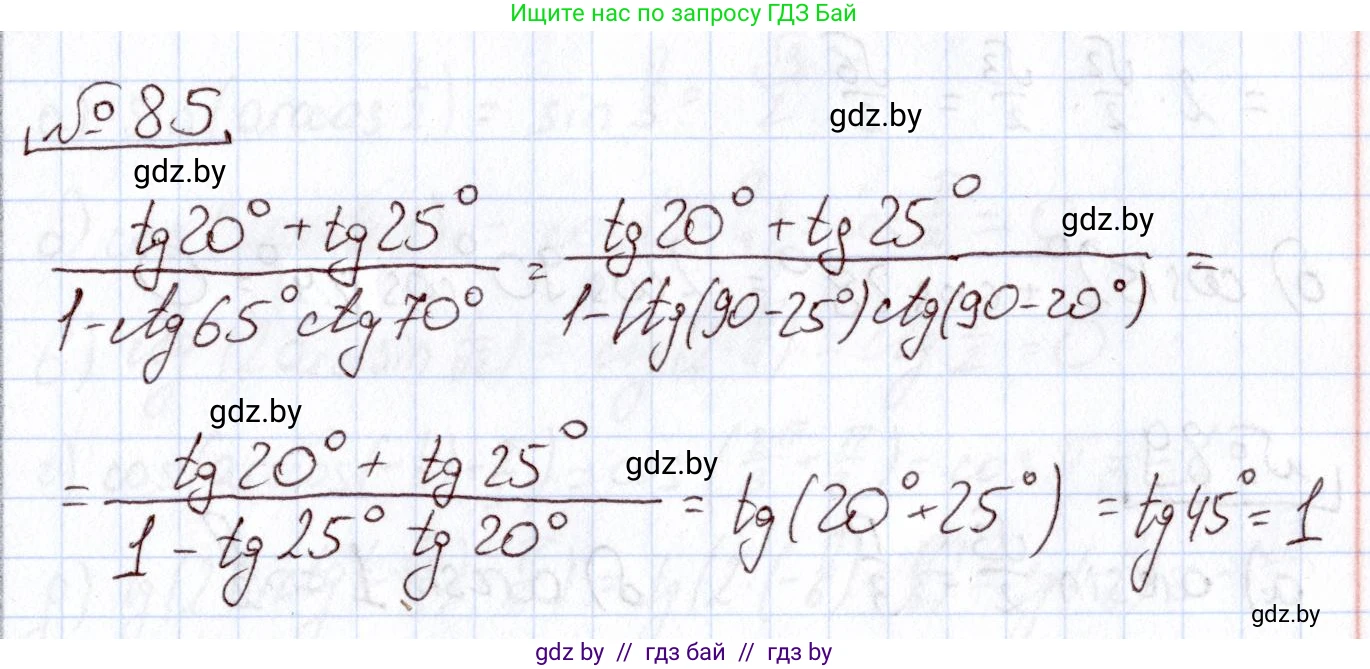 Ищите нас по запросу ГДЗ Бай
№ 85
gdz.by
gdz.by
(tg 20° + tg 25°) / (1 - ctg 65° ctg 70°) = (tg 20° + tg 25°) / (1 - ctg(90 - 25°) ctg(90 - 20°)) =
gdz.by
gdz.by
= (tg 20° + tg 25°) / (1 - tg 25° tg 20°) = tg(20° + 25°) = tg 45° = 1
gdz.by
gdz.by
gdz by // гдз бай // гдз by